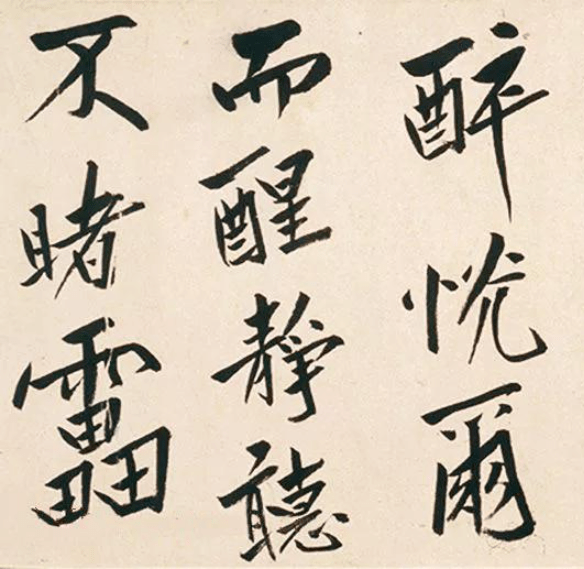 醉恍爾
而醒靜聽
不睹靁